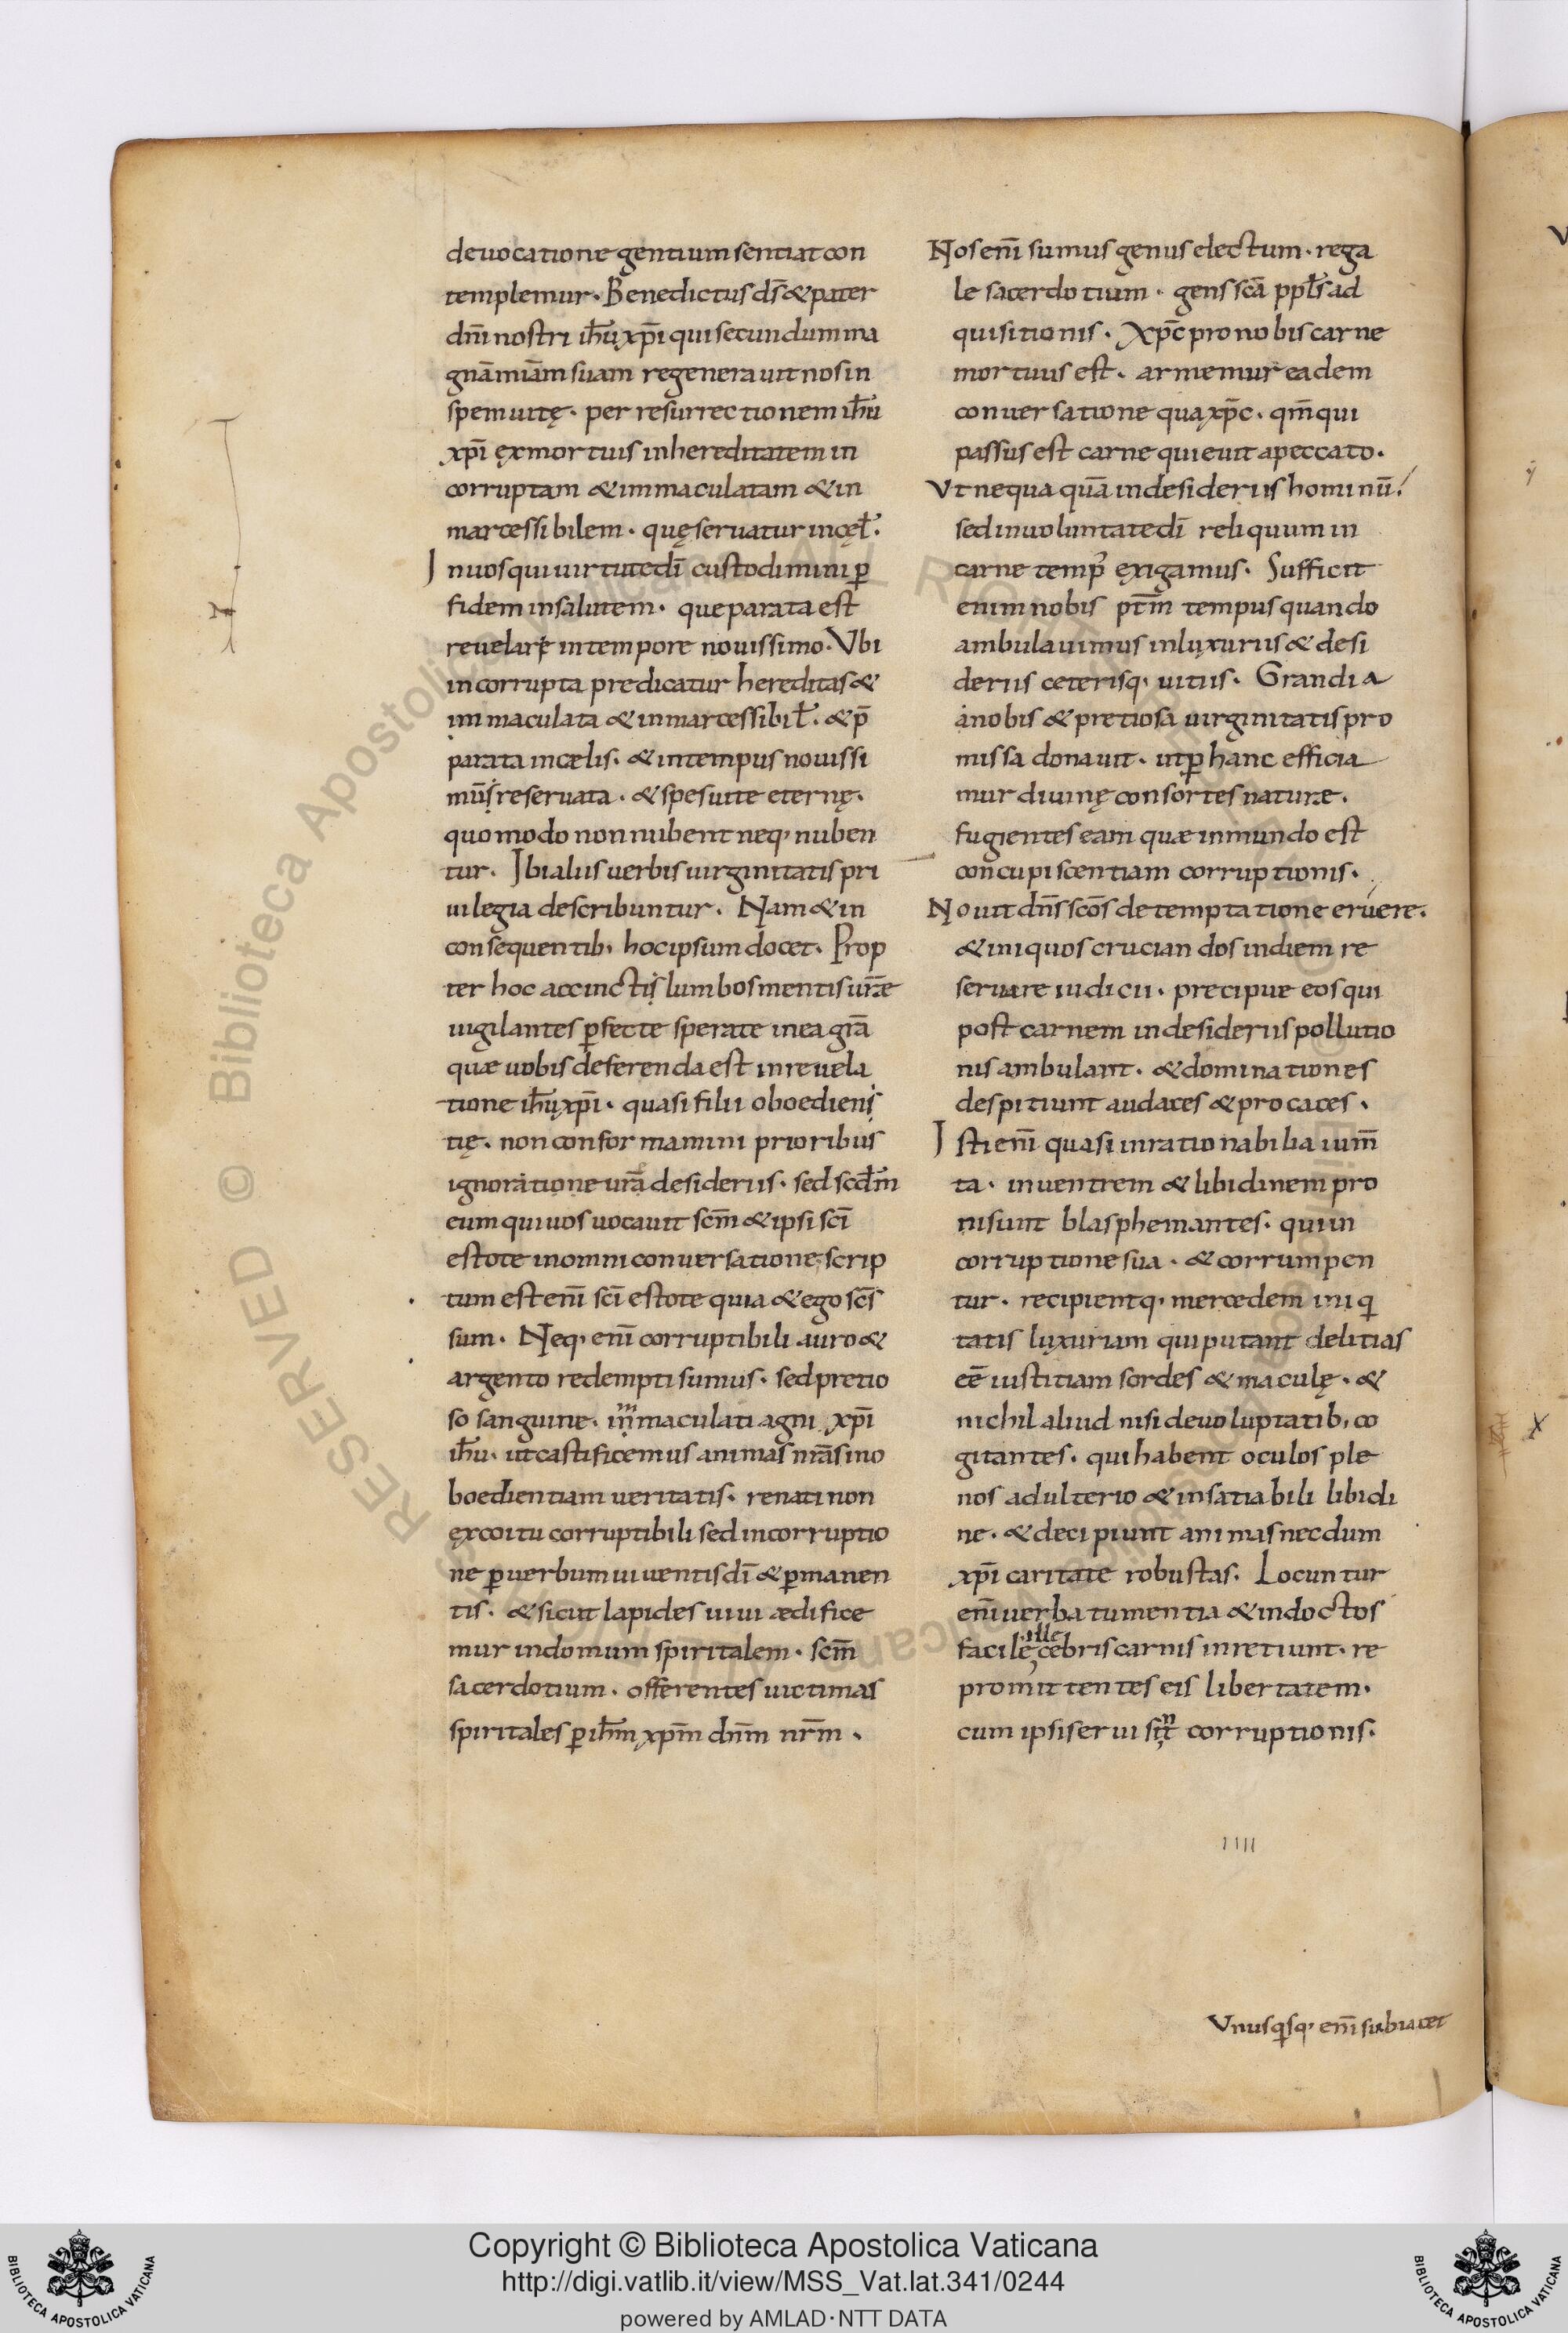 deuocatione gentium sentiat con
templemur. Benedictus ds̄ & pater
dn̄i nostri ih̄u xp̄i qui secundum ma
gnā miām suam regenerauit nos in
spem uitę. per resurrectionem ih̄u
xp̄i ex mortuis in hereditatem in
corruptam & immaculatam & in
marcessibilem. quę seruatur in cęł.
In uos qui uirtute dī custodimini ꝑ
fidem in salutem. que parata est
reuelare in tempore nouissimo. Vbi
incorrupta predicatur hereditas &
immaculata & inmarcessibił. & p̄
parata in cęlis. & in tempus nouissi
mū reseruata. & spes uite eternę.
quomodo non nubent neq; nuben
tur. Ibi aliis uerbis uirginitatis pri
uilegia describuntur. Nam & in
consequentib; hoc ipsum docet. Prop
ter hoc accinctis lumbos mentis ur̄æ
uigilantes ꝑfecte sperate in ea grā
quæ uobis deferenda est in reuela
tione ih̄u xp̄i. quasi filii oboedien
tię. non conformamini prioribus
ignoratione urā desideriis. sed scdm̄
eum qui uos uocauit scm̄ & ipsi scī
estote in omni conuersatione scrip
tum est enī scī estote quia & ego scs̄
sum. Neq; enī corruptibili auro &
argento redempti sumus. sed pretio
so sanguine. immaculati agni xp̄i
ih̄u. ut castificemus animas nrās in o
boedientiam ueritatis. renati non
ex coitu corruptibili sed incorruptio
ne ꝑ uerbum uiuentis dī & ꝑmanen
tis. & sicut lapides uiui ædifice
mur in domum spiritalem. scm̄
sacerdotium. offerentes uictimas
spiritales ꝑ ihm̄ xpm̄ dnm̄ nrm̄.
Nos enī sumus genus electum. rega
le sacerdotium. gens scā ppłs ad
quisitionis. Xpc̄ pro nobis carne
mortuus est. armemur eadem
conuersatione qua xpc̄. qm̄ qui
passus est carne quieuit a peccato.
Vt nequaquā in desideriis hominū.
sed in uoluntate dī reliquum in
carne temp᾿ exigamus. Sufficit
enim nobis ptm̄ tempus quando
ambulauimus in luxuriis & desi
deriis ceterisq; uitiis. Grandia
a nobis & pretiosa uirginitatis pro
missa donauit. ut ꝑ hanc efficia
mur diuinę consortes nature.
fugientes eam quæ in mundo est
concupiscentiam corruptionis.
Nouit dn̄s scōs de temptatione eruere.
& iniquos cruciandos in diem re
seruare iudicii. precipue eos qui
post carnem in desideriis pollutio
nis ambulant. & dominationes
despitiunt audaces & procaces.
Isti enī quasi inrationabilia ium̄
ta. in uentrem & libidinem pro
ni sunt blasphemantes. qui in
corruptione sua. & corrumpen
tur. recipientq; mercedem iniq
tatis luxuriam qui putant delitias
eē iustitiam sordes & maculę. &
nichil aliud nisi de uoluptatib; co
gitantes. qui habent oculos ple
nos adulterio & insatiabili libidi
ne. & decipiunt animas necdum
xp̄i caritate robustas. Locuntur
enī uerba tumentia & indoctos
facile illecebris carnis inretiunt. re
promittentes eis libertatem.
cum ipsi serui sint corruptionis.
IIII
Vnusqisq; enī subiacet
Copyright © Biblioteca Apostolica Vaticana
http://digi.vatlib.it/view/MSS_Vat.lat.341/0244
powered by AMLAD·NTT DATA
BIBLIOTECA APOSTOLICA VATICANA
BIBLIOTECA APOSTOLICA VATICANA